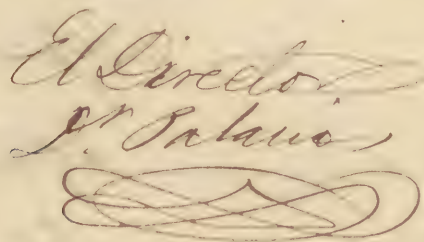 El Director
Jn. Palacio